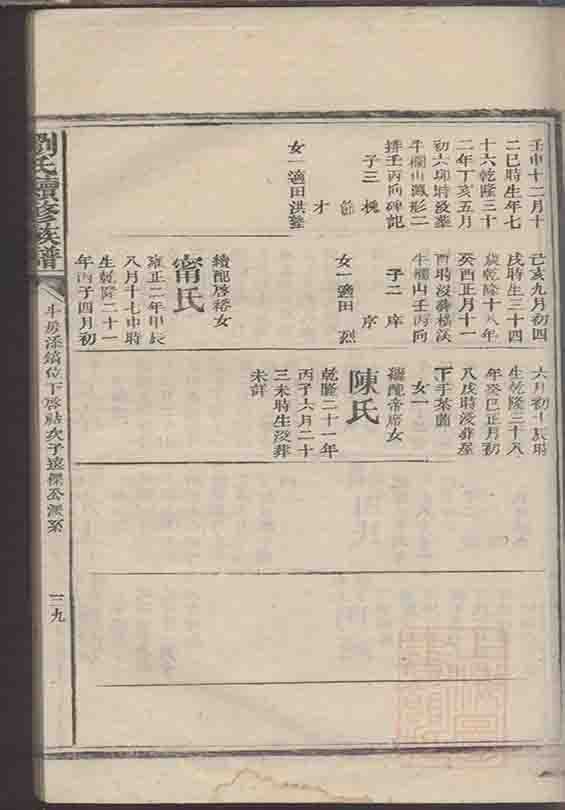 壬申十二月十
二巳時生年七
十六乾隆三十
二年丁亥五月
初六卯時没葬
牛欄山鳳形二
排壬丙向碑記
子三 槐
節
才
女一適田洪鏊
己亥九月初四
戌時生三十四
歲乾隆十八年
癸酉正月十一
酉時没葬楊溪
牛欄山壬丙向
子二 庠
序
女一適田 烈
續配啓裕女
甯氏
雍正二年甲辰
八月十七申時
生乾隆二十一
年丙子四月初
六月初十辰時
生乾隆三十八
年癸巳正月初
八戌時没葬屋
下手茶園
女一
繼配帝席女
陳氏
乾隆二十一年
丙子六月二十
三未時生没葬
未詳
劉氏續修族譜
斗房添鎬位下啓祜次子遠傑公派系
三九